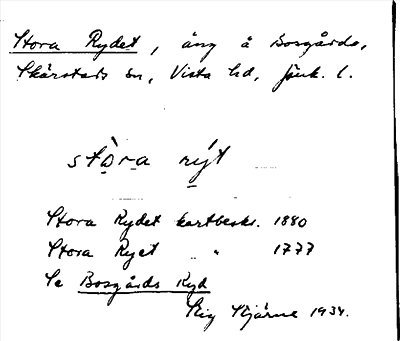 Stora Rydet, äng å Bosgårds,
Skärstads sn, Vista hd, Jönk. l.
stò̱ra rýt
Stora Rydet kartbeskr. 1880
Stora Ryet " 1777
Se Bosgårds Ryd
Stig Stjärne 1934.